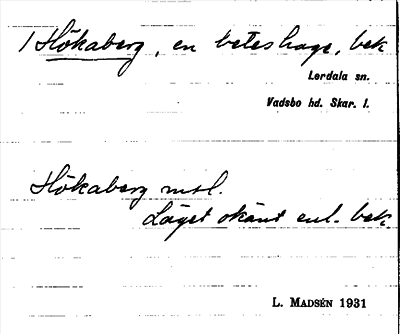 1 Hökaberg, en beteshage, bek
Lerdala sn.
Vadsbo hd. Skar. l.
Hökaberg msl.
Läget okänt enl. bek.
L. MADSÉN 1931